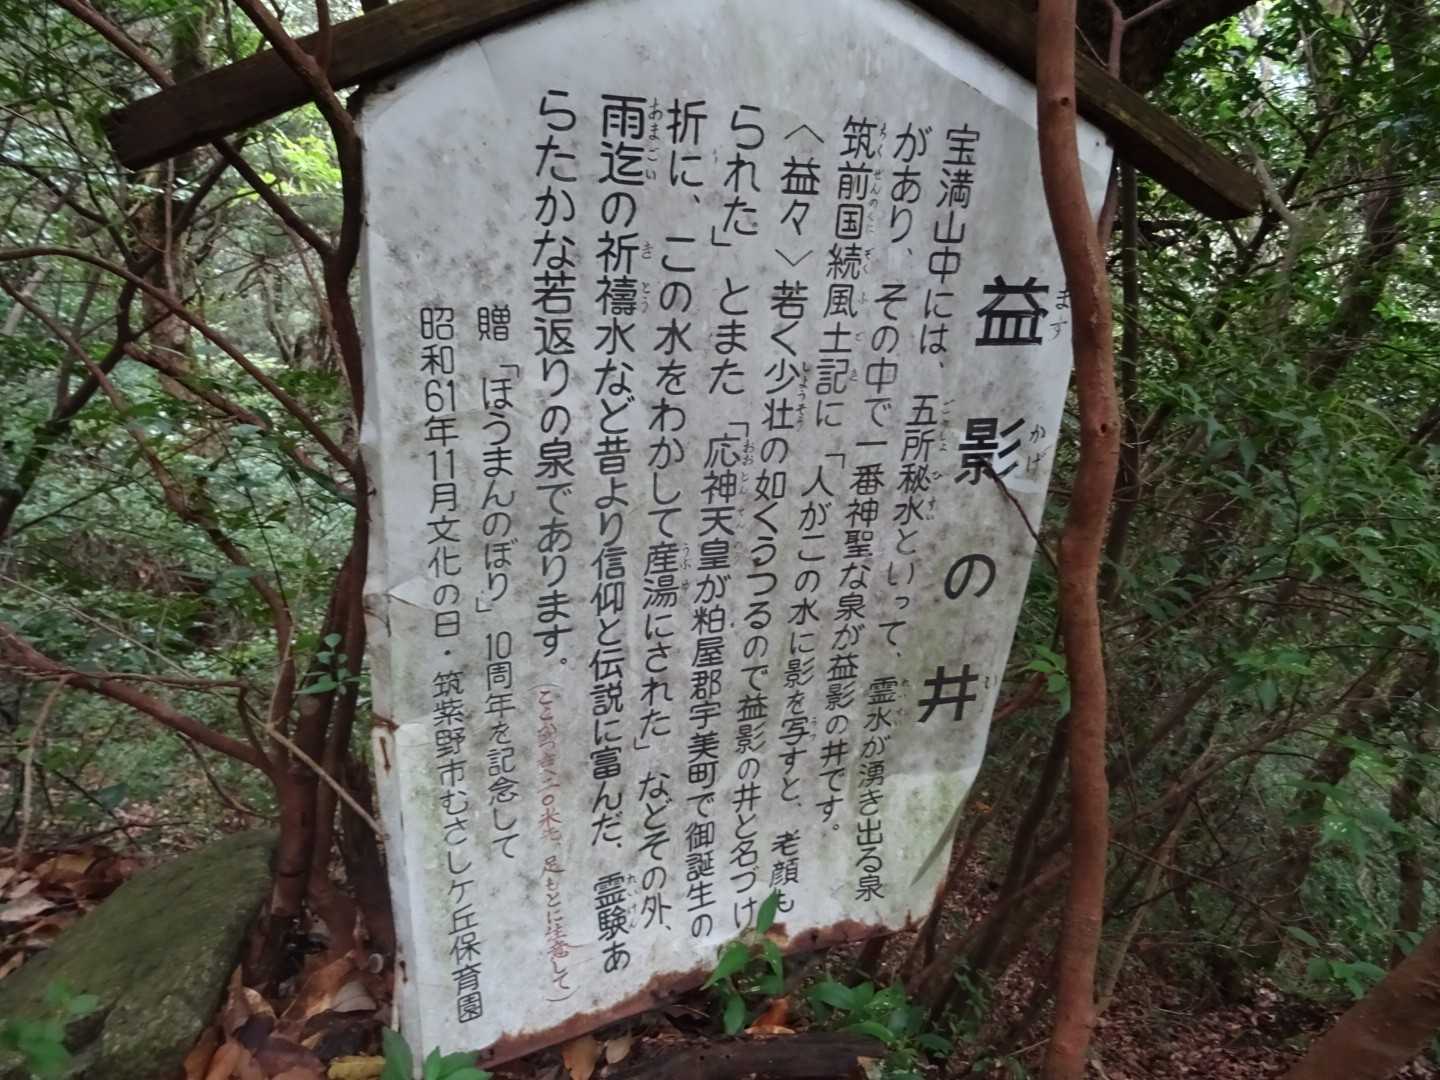 益影の井
宝満山中には、五所秘水といって、霊水が湧き出る泉
があり、その中で一番神聖な泉が益影の井です。
筑前国続風土記に「人がこの水に影を写すと、老顔も
〈益々〉若く少壮の如くうつるので益影の井と名づけ
られた」とまた「応神天皇が粕屋郡宇美町で御誕生の
折に、この水をわかして産湯にされた」などその外、
雨迄の祈禱水など昔より信仰と伝説に富んだ、霊験あ
らたかな若返りの泉であります。
足もとに注意して)
贈「ほうまんのぼり」10周年を記念して
昭和61年11月文化の日・筑紫野市むさしケ丘保育園